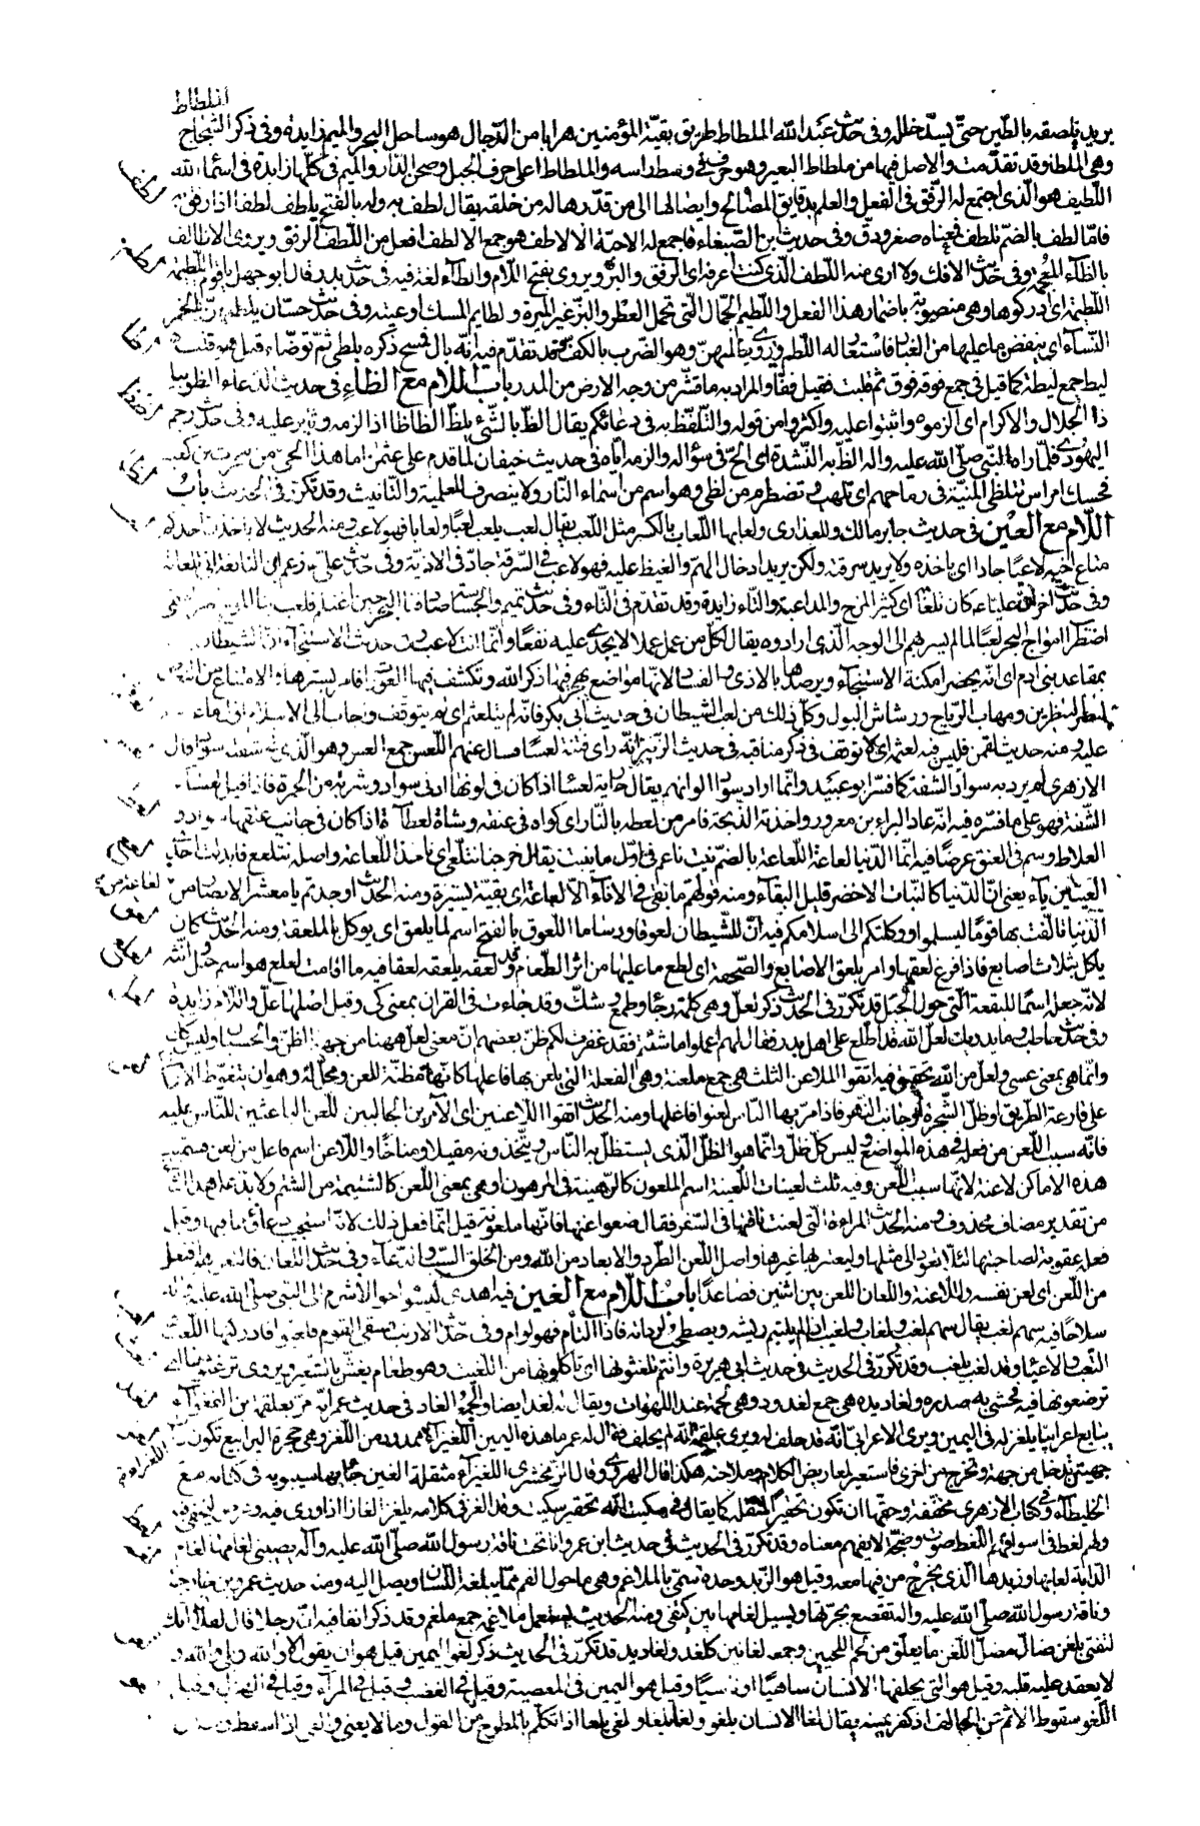 الملطاط
يريد تلصقه بالطين حتى يسد خلله وفى حديث عبد الله الملطاط طريق بقية المؤمنين هرابا من الدجال هو ساحل البحر والميم زايدة وفى ذكر الشجاج
وهى الملطا وقد تقدمت والاصل فيها من ملطاط البعير وهو حرف فى وسط راسه والملطاط اعلى حرف الجبل وصحن الدار والميم فى كلها زايدة فى اسماء الله
لطف
اللطيف هو الذى اجتمع له الرفق فى الفعل والعلم بدقايق المصالح وايصالها الى من قدرها له من خلقه يقال لطف به وله بالفتح يلطف لطفا اذا رفق به
فاما لطف بالضم يلطف فمعناه صغر ودق وفى حديث ابن الصبغاء فاجمع له الاحبة الالاطف هو جمع الالطف افعل من اللطف الرفق ويروى الاظالف
بالظاء المعجمة وفى حديث الافك ولا ارى منه اللطف الذى كنت اعرفه اى الرفق والبر ويروى بفتح اللام والطاء لغة فيه فى حديث بدر قال ابو جهل يا قوم اللطيمة
لطم
اللطيمة اى ادركوها وهى منصوبة باضمار هذا الفعل واللطيمة الجمال التى تحمل العطر والبز غير الميرة ولطايم المسك اوعيته وفى حديث حسان يلطمهن بالخمر
النساء اى ينفض ما عليها من الغبار فاستعار له اللطم وروى يطلمهن وهو الضرب بالكف وقد تقدم فيه انه بال فمسح ذكره بلطى ثم توضاء قيل هو قلب
لطا
ليط جمع ليطة كما قيل فى جمع فوقة فوق ثم قلبت فقيل فقا والمراد به ما قشر من وجه الارض من المدر باب اللام مع الظاء فى حديث الدعاء الظوا بيا
لظظ
ذا الجلال والاكرام اى الزموه واثبتوا عليه واكثروا من قوله والتلفظ به فى دعائكم يقال الظ بالشئ يلظ الظاظا اذا لزمه وثابر عليه وفى حديث رجم
اليهودى فلما راه النبى صلى الله عليه واله الظ به النشدة اى الح فى سؤاله والزمه اياه فى حديث خيفان لما قدم على عثمن اما هذا الحى من
لظى
فحسك امراس تتلظى المنية فى رماحهم اى تلتهب وتضطرم من لظى وهو اسم من اسماء النار ولا ينصرف للعلمية والتانيث وقد تكرر فى الحديث باب
لعب
اللام مع العين فى حديث جابر مالك وللعذارى ولعابها اللعاب بالكسر مثل اللعب يقال لعب يلعب لعبا ولعابا فهو لاعب ومنه الحديث لا ياخذن احدكم
متاع اخيه لاعبا جادا اى ياخذه ولا يريد سرقته ولكن يريد ادخال الهم والغيظ عليه فهو لاعب فى السرقة جاد فى الاذية وفى حديث على زعم ابن النابغة انى تلعابة
وفى حديث اخر ان عليا كان تلعابة اى كثير المزح والمداعبة والتاء زايدة وقد تقدم فى التاء وفى حديث تميم والجساسة صادفنا البحر حين اغتلم فلعب بنا الموج شهرا سمى
اضطراب امواج البحر لعبا لما لم يسر بهم الى الوجه الذى ارادوه يقال لكل من عمل عملا لا يجدى عليه نفعا وانما انت لاعب وفى حديث الاستنجاء ان الشيطان
بمقاعد بنى ادم اى انه يحضر امكنة الاستنجاء ويرصدها بالاذى والفساد لانها مواضع يهجر فيها ذكر الله وتكشف فيها العورات فامر بسترها والامتناع من
لنظر الناظرين ومهاب الرياح ورشاش البول وكل ذلك من لعب الشيطان فى حديث ابى بكر فانه لم يتلعثم اى لم يتوقف واجاب الى الاسلام
عليه ومنه حديث لقمن فليس فيه لعثمة اى لا توقف فى ذكر مناقبه فى حديث الزبير انه راى فتية لعسا فسال عنهم اللعس جمع العس وهو الذى فى شفته سواد قال
الازهرى لم يرد به سواد الشفة كما فسره ابو عبيد وانما اراد سواد الوانهم يقال جارية لعسا اذا كان فى لونها ادنى سواد وشربة من الحمرة فاذا قيل لعساء
الشفة فهو على ما فسره فيه انه عاد البراء بن معرور واخذته الذبحة فامر من لعطه بالنار اى كواه فى عنقه وشاة لعطاء اذا كان فى جانب عنقها سواد و
العلاط وسم فى العنق عرضا فيه انما الدنيا لعاعة اللعاعة بالضم نبت ناعم فى اول ما ينبت يقال خرجنا نتلعى اى ناخذ اللعاعة واصله نتلعع فابدلت احدى
العينين ياء يعنى ان الدنيا كالنبات الاخضر قليل البقاء ومنه قولهم ما بقى فى الاناء الا لعاعة اى بقية يسيرة ومنه الحديث اوجدتم يا معشر الانصار من
لعاعة من
لعق
الدنيا تالفت بها قوما ليسلموا ووكلتكم الى اسلامكم فيه ان للشيطان لعوقا ودساما اللعوق بالفتح اسم لما يلعق اى يوكل بالملعقة ومنه الحديث كان
ياكل بثلاث اصابع فاذا فرغ لعقها وامر بلعق الاصابع والصحفة اى لطع ما عليها من اثر الطعام وقد لعقه يلعقه لعقا فيه ما اقامت لعلع هو اسم جبل انثه
لانه جعله اسما للبقعة التى حول الجبل قد تكرر فى الحديث ذكر لعل وهى كلمة رجاء وطمع وشك وقد جاءت فى القران بمعنى كى وقيل اصلها عل واللام زايدة
وفى حديث حاطب وما يدريك لعل الله قد اطلع على اهل بدر فقال لهم اعملوا ما شئتم فقد غفرت لكم ظن بعضهم ان معنى لعل ههنا من جهة الظن والحسبان وليس كذلك
وانما هى بمعنى عسى ولعل من الله تحقيق فيه اتقوا الملاعن الثلث هى جمع ملعنة وهى الفعلة التى يلعن بها فاعلها كانها مظنة للعن ومحل له وهو ان يتغوط الانسان
على قارعة الطريق او ظل الشجرة او جانب النهر فاذا مر بها الناس لعنوا فاعلها ومنه الحديث اتقوا اللاعنين اى الامرين الجالبين للعن الباعثين للناس عليه
فانه سبب للعن من فعله فى هذه المواضع وليس كل ظل وانما هو الظل الذى يستظل به الناس ويتخذونه مقيلا ومناخا واللاعن اسم فاعل من لعن فسميت
هذه الاماكن لاعنة لانها سبب اللعن وفيه ثلث لعينات اللعينة اسم الملعون كالرهينة فى المرهون او هى بمعنى اللعن كالشتيمة من الشتم ولا بد على هذا الثانى
من تقدير مضاف محذوف ومنه الحديث المراءة التى لعنت ناقتها فى السفر فقال ضعوا عنها فانها ملعونة قيل انما فعل ذلك لانه استجيب دعاؤها فيها وقيل
فعله عقوبة لصاحبتها لئلا تعود الى مثلها وليعتبر بها غيرها واصل اللعن الطرد والابعاد من الله ومن الخلق السب والدعاء وفى حديث اللعان فالتعن هو افتعل
من اللعن اى لعن نفسه والملاعنة واللعان اللعن بين اثنين فصاعدا باب اللام مع الغين فيه اهدى يكسوم اخو الاشرم الى النبى صلى الله عليه واله
سلاحا فيه سهم لغب يقال سهم لغب ولغاب ولغيب اذا لم يلتئم ريشه ويصطحب لرداته فاذا التام فهو لؤام وفى حديث الارنب فسعى القوم فلغبوا فادركتها اللغب
التعب والاعياء وقد لغب يلغب وقد تكرر فى الحديث فى حديث ابى هريرة وانتم تلغثونها اى تاكلونها من اللغيث وهو طعام يغلث بالشعير ويروى ترغثونها اى
ترضعونها فيه فحشى به صدره ولغاديده هى جمع لغدود وهى لحمة عند اللهوات ويقال له لغد ايضا والجمع الغاد فى حديث عمر انه مر بعلقمة بن الفغواء
يبايع اعرابيا يلغز له فى اليمين ويرى الاعرابى انه قد حلف له ويرى علقمة انه لم يحلف فقال له عمر ما هذه اليمين اللغيزاء ممدود من اللغز وهى جحرة اليرابيع تكون ذات
جهتين تدخل من جهة وتخرج من اخرى فاستعير لمعاريض الكلام وملاحنه هكذا قال الهروى وقال الزمخشرى اللغيزا مثقلة الغين جاء بها سيبويه فى كتابه مع
الخليطاء وفى كتاب الازهرى مخففة وحقها ان تكون تحقير المثقلة كما يقال فى سكيت انه تحقير سكيت وقد الغز فى كلامه يلغز الغازا اذا ورى فيه
ولهم لغط فى اسواقهم اللغط صوت وضجة لا يفهم معناه وقد تكرر فى الحديث فى حديث ابن عمر وانا تحت ناقة رسول الله صلى الله عليه واله يصيبنى لغامها لغام
الدابة لعابها وزبدها الذى يخرج من فيها معه وقيل هو الزبد وحده سمى بالملاغم وهى ما حول الفم مما يبلغه اللسان ويصل اليه ومنه حديث عمرو بن خارجة
وناقة رسول الله صلى الله عليه واله تقصع بجرتها ويسيل لغامها بين كتفى ومنه الحديث يستعمل ملاغمه جمع ملغم وقد ذكر انفا فيه ان رجلا قال لفلان انك
لتفتى بلغن ضال مضل اللغن ما يعلق من لحم اللحيين وجمعه لغانين كلغد ولغاديد قد تكرر فى الحديث ذكر لغو اليمين قيل هو ان يقول لا والله وبلى والله و
لا يعقد عليه قلبه وقيل هو التى يحلفها الانسان ساهيا او ناسيا وقيل هو اليمين فى المعصية وقيل فى الغضب وقيل فى المراء وقيل فى الهزل وقيل
اللغو سقوط الاثم عن الحالف اذا كفر يمينه يقال لغا الانسان يلغو ولغا يلغا ولغى يلغا اذا تكلم بالمطروح من القول وما لا يعنى والغى اذا اسقط